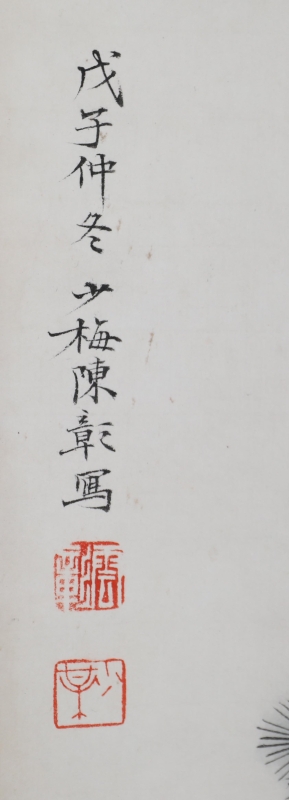 戊子仲冬 少梅陳彰寫